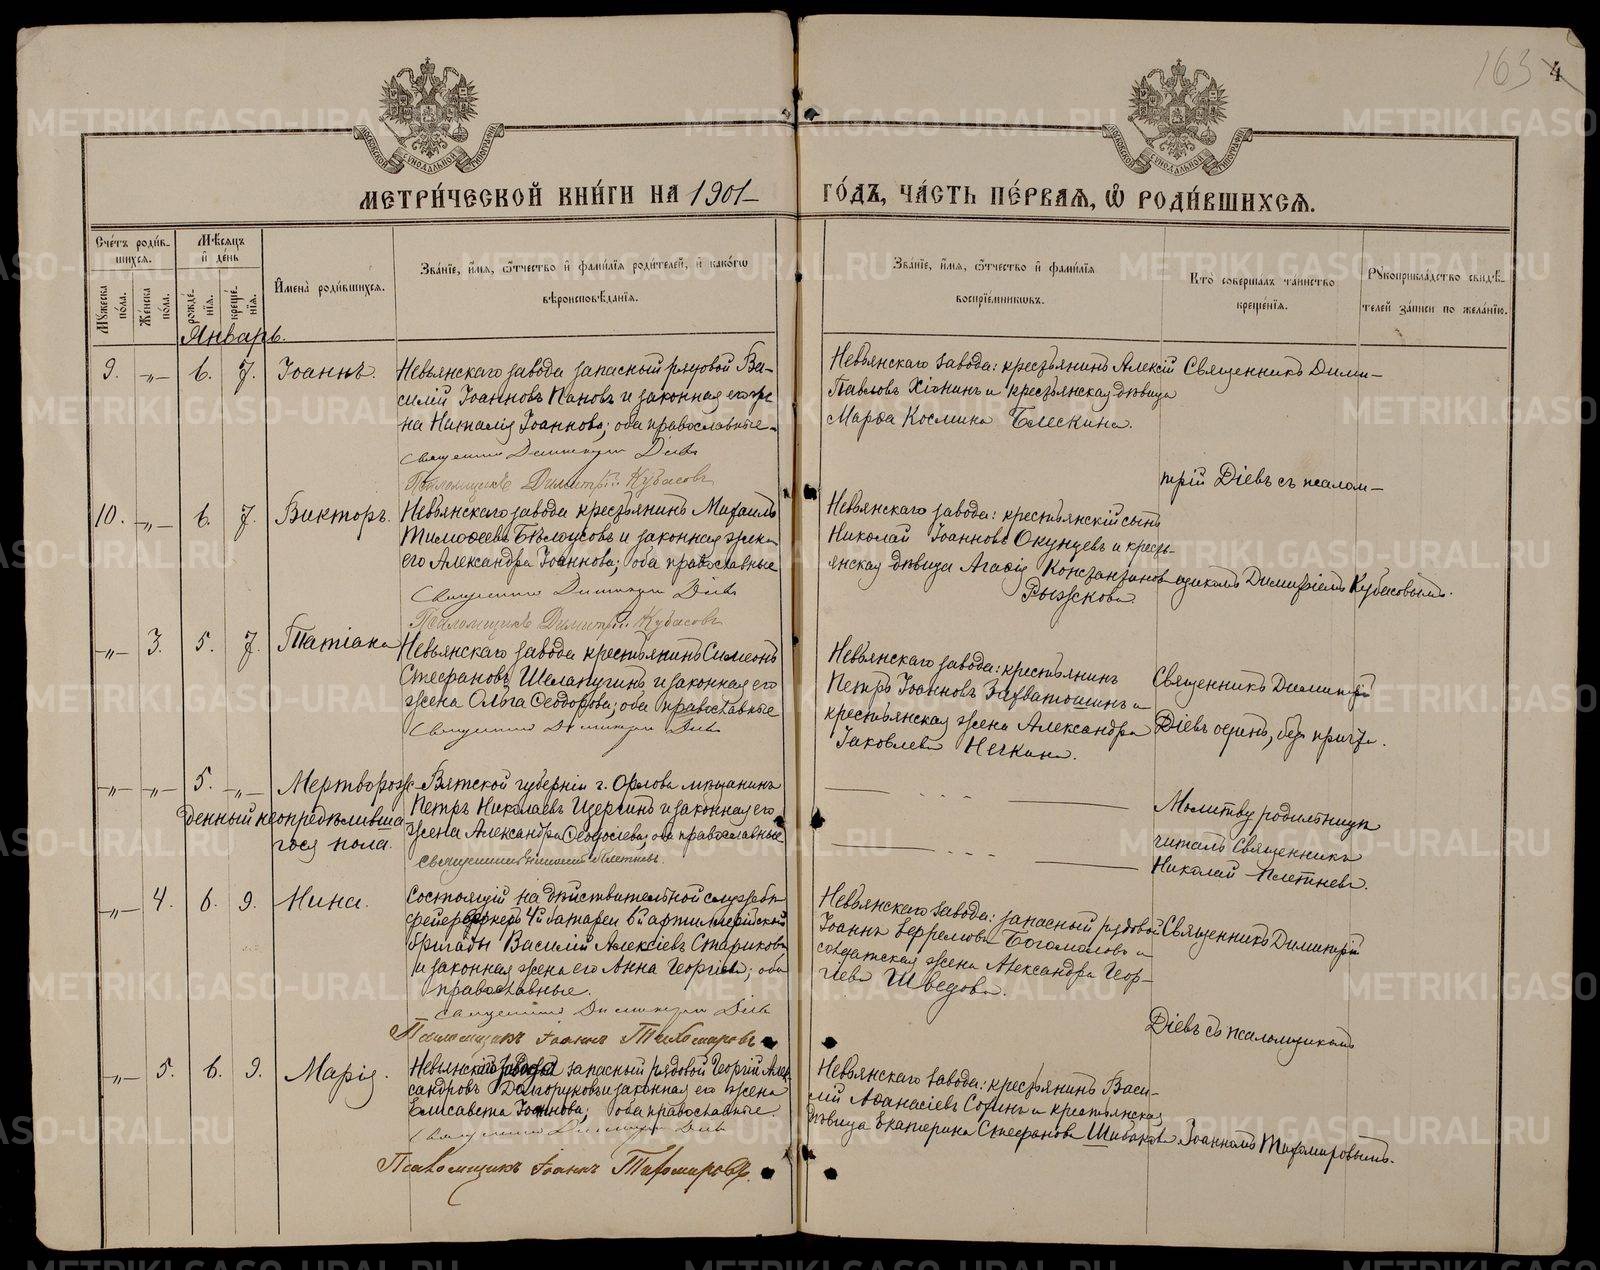 163 4
МЕТРИ́ЧЕСКОЙ КНИ́ГИ НА 1901 ГО́ДЪ, ЧА́СТЬ ПЕ́РВАѦ, Ѿ РОДИ́ВШИХСѦ.
Счётъ роди́в-
шихсѧ.
Мѣсѧцъ
и де́нь
Мꙋжеска по́ла.
Же́нска по́ла.
рожде́-
нїѧ.
креще́-
нїѧ.
Имена̀ роди́вшихсѧ.
Зва́нїе, и́мѧ, ѻ҆́тчество и фами́лїѧ роди́телей, и како́гѡ
вѣроисповѣ́данїѧ.
Зва́нїе, и́мѧ, ѻ҆́тчество и фами́лїѧ
воспрїе́мникѡвъ.
Кто̀ соверша́лъ та́инство
креще́нїѧ.
Рꙋкоприкла́дство свидѣ́-
телей за́писи по жела́нїю.
Январь.
9. -"- 6. 7. Іоаннъ.
Невьянскаго завода запасный рядовой Ва-
силій Іоанновъ Пановъ и законная его же
на Наталія Іоаннова; оба православные.
Священникъ Димитрій Діевъ
Псаломщикъ Димитрій Кубасовъ
Невьянскаго завода: крестьянинъ Алексій
Павловъ Хіонинъ и крестьянская дѣвица
Марѳа Космина Блескина.
Священникъ Дими-
трій Діевъ съ псалом-
10. -"- 6. 7. Викторъ.
Невьянскаго завода крестьянинъ Михаилъ
Тимоѳеевъ Бѣлоусовъ и законная жена
его Александра Іоаннова; оба православные
Священникъ Димитрій Діевъ
Псаломщикъ Димитрій Кубасовъ
Невьянскаго завода: крестьянскій сынъ
Николай Іоанновъ Окунцевъ и кресть-
янская дѣвица Агаѳія Константинов
Рыжкова.
щикомъ Димитріемъ Кубасовымъ.
-"- 3. 5. 7. Татіана
Невьянскаго завода крестьянинъ Симеонъ
Стефановъ Шелапугинъ и законная его
жена Ольга Ѳеодорова; оба православные
Священникъ Димитрій Діевъ
Невьянскаго завода: крестьянинъ
Петръ Іоанновъ Захватошинъ и
крестьянская жена Александра
Іаковлева Нечкина.
Священникъ Димитрій
Діевъ одинъ, безъ причта.
-"- -"- 5. -"- Мертворож-
денный неопредѣливша
гося пола.
Вятской губерніи г. Орлова мѣщанинъ
Петръ Николаевъ Изергинъ и законная его
жена Александра Ѳеодосіева; оба православные
Священникъ Николай Плетневъ.
Молитву родильницѣ
читалъ Священникъ
Николай Плетневъ.
-"- 4. 6. 9. Нина.
Состоящій на дѣйствительной службѣ
фейерверкеръ 4й батареи 6й артиллерійской
бригады Василій Алексіевъ Стариковъ
и законная жена его Анна Георгіева; оба
православные.
Священникъ Димитрій Діевъ
Псаломщикъ Іоаннъ Тихомировъ
Невьянскаго завода: запасный рядовой
Іоаннъ Ефремовъ Богомоловъ и
солдатская жена Александра Геор-
гіева Шведова.
Священникъ Димитрій
Діевъ съ псаломщикомъ
-"- 5. 6. 9. Марія.
Невьянскаго завода запасный рядовой Георгій Алек
сандровъ Долгоруковъ и законная его жена
Елисавета Іоаннова; оба православные.
Священникъ Димитрій Діевъ
Псаломщикъ Іоаннъ Тихомировъ.
Невьянскаго завода: крестьянинъ Васи-
лій Аѳанасіевъ Сохинъ и крестьянская
дѣвица Екатерина Стефанова Шибакова
Іоанномъ Тихомировымъ.